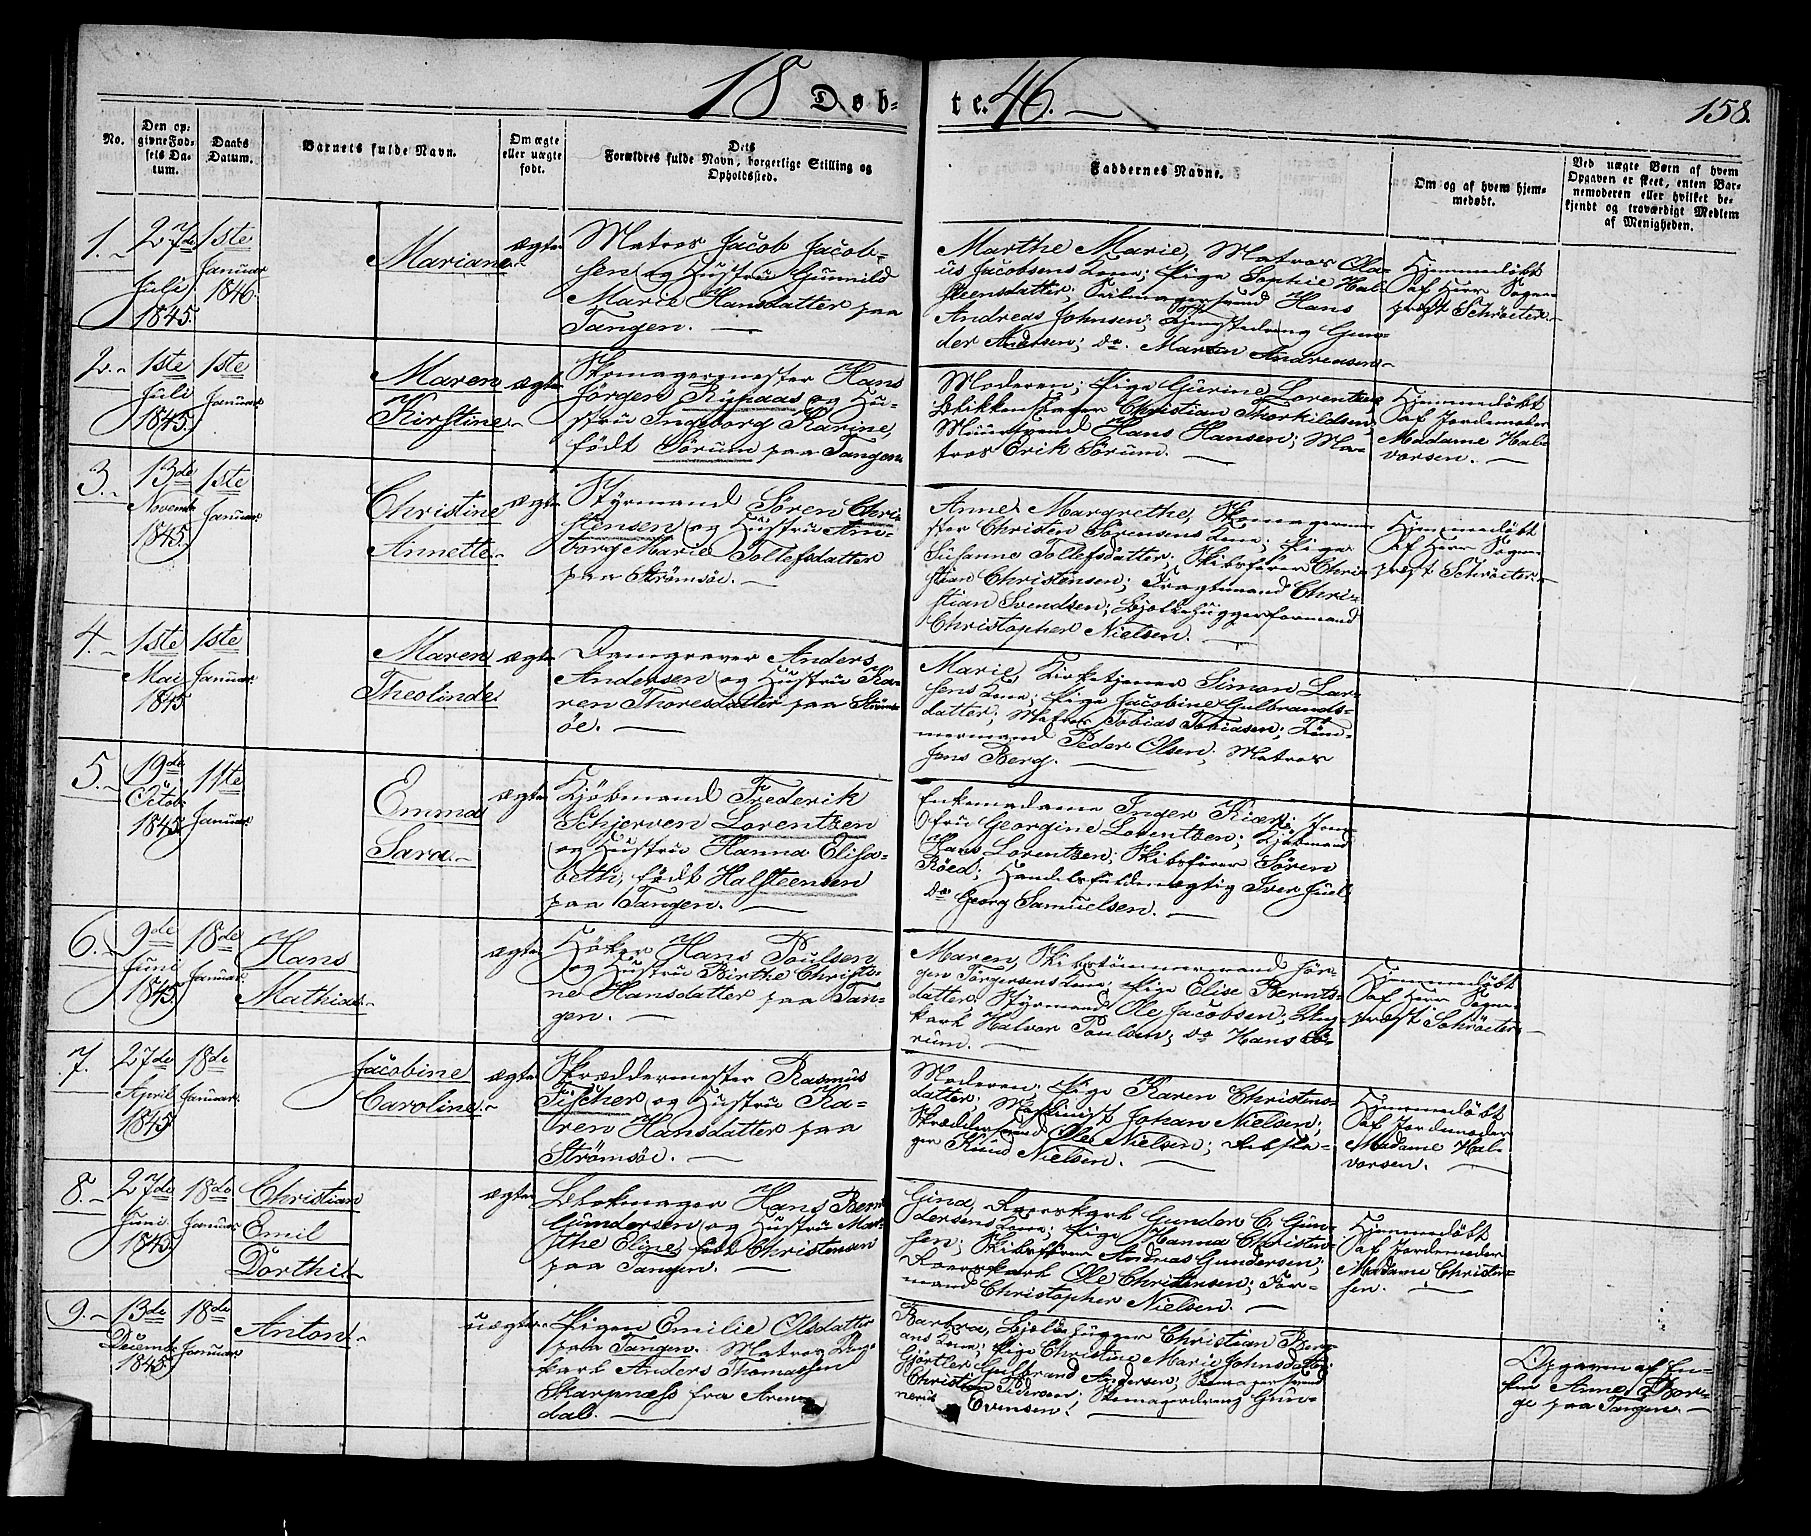 18 Døb-
te. 46.
158.
No.
Den op-
givne Fød-
sels Da-
tum.
Daabs
Datum.
Barnets fulde Navn.
Om ægte
eller uægte
født.
Dets
Forældres fulde Navn, borgerlige Stilling og
Opholdssted.
Faddernes Navne.
Om og af hvem hjem-
medøbt.
Ved uægte Børn af hvem
Opgaven er skeet, enten Bar-
nemoderen eller hvilket be-
kjendt og troværdigt Medlem
af Menigheden.
1.
27de
Juli
1845.
1ste
Januar
1846.
Mariane.
ægte
Matros Jacob Jacob-
sen og Hustru Gunnild
Marie Hansdatter paa
Tangen.
Marthe Marie, Matros Ola-
us Jacobsens Kone; Pige Sophie Hal-
steensdatter; Seilmagersvend Hans
Andreas Johnsen;
der Andersen; do. Andreasen
Hjemmedøbt
af Herr Sogne-
præst Schröeter.
2.
1ste
Juli
1845.
1ste
Januar
Maren
Kirstine.
ægte
Skomagermester Hans
Jörgen Rynaas og Hu-
stru Ingeborg Karine,
födt Sörum paa Tangen
Moderen; Pige Gurine Lorentzen
Blikkenslager Christian Thorkildsen;
Muursvend Hans Hansen; Ma-
tros Erik Sörum.
Hjemmedøbt
af Jordemoder
Madame Hal-
vorsen.
3.
13de
Novemb.
1845.
1ste
Januar.
Christine
Annette.
ægte
Styrmand Sören Chri-
stensen og Hustru An-
borg Marie Tollefsdatter
paa Strömsöe.
Anne Margrethe, Skomagerme-
ster Christen Sörensens Kone; Pige
Susanne Tollefsdatter; Skibsförer Chri-
stian Christensen; Fragtemand Chri-
stian Svendsen; Bjelkehuggerformand
Christopher Nielsen.
Hjemmedøbt
af Herr Sogne-
præst Schröeter.
4.
1ste
Mai
1845
1ste
Januar.
Maren
Theolinde.
ægte
Damgraver Anders
Andersen og Hustru Ka-
ren Thoresdatter paa Ströms-
öe.
Marie, Kirketjener Simon Lar-
sens Kone; Pige Jacobine Gulbrands-
datter; Matros Tobias Tobiasen; Töm-
mermand Peder Olsen; Matros
Jens Berg.
5.
19de
Octob.
1845.
1ste
Januar.
Emma
Sara.
ægte
Kjöbmand Frederik
Schjerven Lorentzen
og Hustru Hanna Elisa-
beth, födt Halsteensen
paa Tangen.
Enkemadame Inger Kiær; Jom-
fru Georgine Lorentzen; Kjöbmand
Hans Lorentzen; Skibsförer Sören
Röed; Handelsfuldmægtig Iver Juel;
do Georg Samuelsen.
6.
9de
Juni
1845
18de
Januar.
Hans
Mathias.
ægte
Höker Hans Poulsen
og Hustru Birthe Christi-
ne Hansdatter paa Tan-
gen.
Maren, Skibstömmermand Jör-
gen Jörgensens Kone; Pige Elise Bernts-
datter; Styrmand Ole Jacobsen; Dag-
karl Halvor Poulsen; do Hans Sö-
rum.
Hjemmedøbt
af Herr Sogne-
præst Schröeter.
7.
27de
April
1845
18de
Januar.
Jacobine
Caroline.
ægte
Skræddermester Rasmus
Fischer og Hustru Ka-
ren Hansdatter paa
Strömsöe.
Moderen; Pige Karen Christens-
datter; Maskinist Johan Nielsen;
Skræddersvend Ole Nielsen; Arbeida-
ger Knud Nielsen.
Hjemmedøbt
af Jordemoder
Madame Hal-
vorsen.
8.
27de
Juni
1845
18de
Januar
Christian
Emil
Dorthin.
ægte
Blokmager Hans Bernt
Gundersen og Hustru Mar-
the Eline, født Christensen
paa Tangen.
Gina, Gunder C. Gun-
dersens Kone; Pige Hanna Christen-
sen; Skibsförer Andreas Gundersen;
Ole Christensen; For-
mand Christopher Nielsen.
Hjemmedøbt
af Jordemoder
Madame Christen-
sen.
9.
13de
Decemb.
1845
18de
Januar.
Anton.
uægte
Pigen Emilie Olsdatter
paa Tangen. Matros Dag-
karl Anders Thomassen
Skarpnæss fra Aren-
dal.
Barbra, Bjelkehugger Christian Berg-
ans Kone; Pige Christine Marie Johnsdatter;
Gjørtler Gulbrand Andersen; Skomagersvend
Christian Pedersen; Skomagerdreng Gun-
nerik Evensen.
Opgaven af En-
ken Anne Bor-
ge paa Tangen.